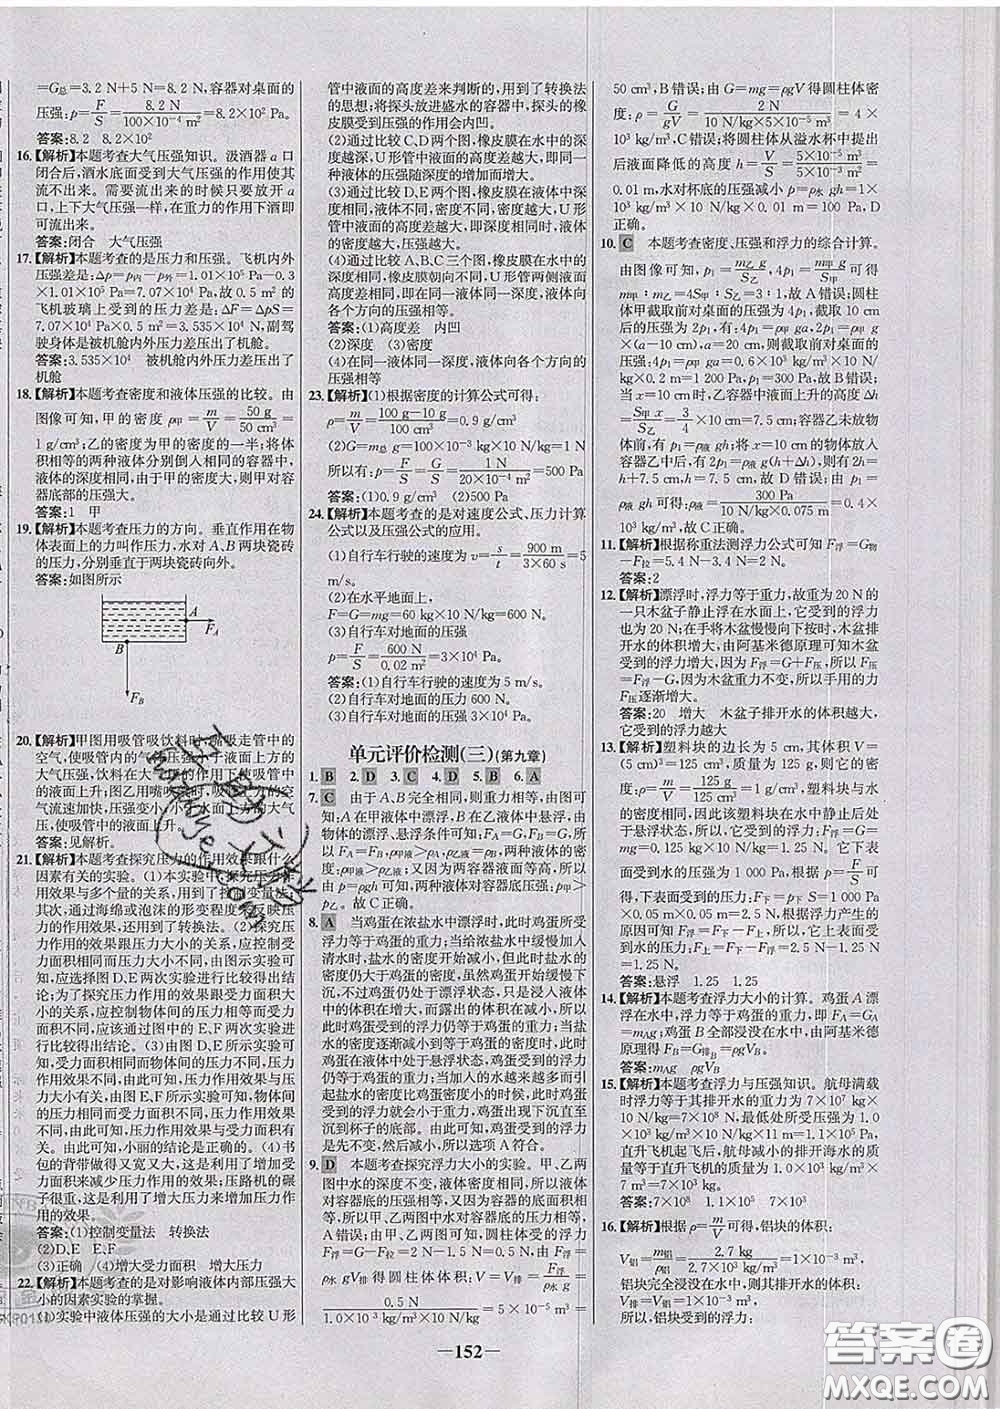 =G总=3.2 N+5 N=8.2 N,容器对桌面的
压强:p=F/S=8.2 N/(100×10⁻⁴ m²)=8.2×10² Pa。
答案:8.2 8.2×10²
16.【解析】本题考查大气压强知识。汲酒器a口
闭合后,酒水底面受到大气压强的作用使其
流不出来。需要流出来的时候只要放开a
口,上下大气压强一样,在重力的作用下酒即
可流出来。
答案:闭合 大气压强
17.【解析】本题考查的是压力和压强。飞机内外
压强差是:Δp=p内-p外=1.01×10⁵ Pa-0.3
×1.01×10⁵ Pa=7.07×10⁴ Pa,故0.5 m²的
飞机玻璃上受到的压力差是:ΔF=ΔpS=
7.07×10⁴ Pa×0.5 m²=3.535×10⁴ N,副驾
驶身体是被机舱内外压力差压出了机舱。
答案:3.535×10⁴ 被机舱内外压力差压出了
机舱
18.【解析】本题考查密度和液体压强的比较。由
图像可知,甲的密度ρ甲=m/V=50 g/50 cm³=
1 g/cm³;乙的密度为甲的密度的一半;将体
积相等的两种液体分别倒入相同的容器中,
液体的深度相同,由于甲的密度大,故甲对容
器底部的压强大。
答案:1 甲
19.【解析】本题考查压力的方向。垂直作用在物
体表面上的力叫作压力,水对A、B两块瓷砖
的压力,分别垂直于两块瓷砖向外。
答案:如图所示
A
F_A
B
F_B
20.【解析】甲图用吸管吸饮料时,嘴吸走管中的
空气,使吸管内的气体压强小于外界的大气
压强,饮料在大气压强的作用下被压入吸管,使
液面上升;图乙用嘴吹气时,吸管上方的空
气流速加快,压强变小,小于水面上方的大气
压,使吸管中的液面上升。
答案:见解析。
21.【解析】本题考查探究压力的作用效果跟什么
因素有关的实验。(1)本实验中,探究压力作
用效果与多个量的关系,用到了控制变量法;
通过海绵或泡沫的形变程度大小反映压
力的作用效果,还用到了转换法。(2)探究压
力作用的效果跟压力大小的关系,应控制受
力面积相同而压力大小不同,由图示实验可
知,应选择图D、E两次实验进行比较得出结
论;为了探究压力作用的效果与受力面积大
小的关系,应控制物体间的压力相等而受力
面积不同,应该通过图中的E、F两次实验
进行比较得出结论。(3)由图D、E所示实验可知,
受力面积相同而物体间的压力不同,压力作用
效果不同,由此可知,压力作用效果与压力
大小有关,由图E、F所示实验可知,物体间的
压力相同而受力面积不同,压力的作用效果
不同,由此可知,压力作用效果与受力面积大
小有关,由此可知,小丽的结论是正确的。(4)书
包的背带做得又宽又大,这是通过增大受力面
积来减小压力的作用效果,压路机的碾
子很重,这是通过增大压力来增加压力
的作用效果。
答案:(1)控制变量法 转换法
(2)D、E E、F
(3)正确 (4)增大受力面积 增大压力
22.【解析】本题考查的是对影响液体内部压强大
小的因素实验的掌握。
(1)实验中液体压强的大小是通过比较U形
管中液面的高度差来判断的,用到了转换法
的思想;将探头放进盛水的容器中,探头的橡
皮膜受到压强的作用会内凹。
(2)通过比较B、C两个图,橡皮膜在水中的
深度不同,U形管中液面的高度差不同,即同
一种液体的压强随深度的增加而增大。
(3)通过比较D、E两个图,橡皮膜在液体中深
度相同,液体不同,密度不同,密度越大,U形
管中液面的高度差越大,即在液体的同一深
度,液体的密度越大,压强越大。
(4)通过比较A、B、C三个图,橡皮膜在水中的
深度相同,橡皮膜方向不同,U形管两侧液面
高度差相同,即同一种液体的相同深度,液体
向各个方向的压强相等。
答案:(1)高度差 内凹
(2)深度 (3)密度
(4)在同一液体同一深度,液体向各个方向的
压强相等
23.【解析】(1)根据密度的计算公式可得:
ρ=m/V=(100 g-10 g)/(100 cm³)=0.9 g/cm³
(2)G=mg=100×10⁻³ kg×10 N/kg=1 N
所以有:p=F/S=G/S=1 N/(20×10⁻⁴ m²)=500 Pa
答案:(1)0.9 g/cm³ (2)500 Pa
24.【解析】本题考查的是对速度公式、压力计算
公式以及压强公式的应用。
(1)自行车行驶的速度为v=s/t=900 m/(3×60 s)=5
m/s。
(2)在水平地面上,
F=G=mg=60 kg×10 N/kg=600 N。
(3)自行车对地面的压强
p=F/S=600 N/0.02 m²=3×10⁴ Pa。
答案:(1)自行车行驶的速度为5 m/s。
(2)自行车对地面的压力600 N。
(3)自行车对地面的压强3×10⁴ Pa。
单元评价检测(三)(第九章)
1. B 2. D 3. C 4. D 5. B 6. A
7. C 由于A、B完全相同,则重力相等,由图可
知:A在甲液体中漂浮,B在乙液体中悬浮,由
物体的漂浮、悬浮条件可知:F_A=G,F_B=G,所
以F_A=F_B,ρ甲液>ρ物,ρ乙液=ρ物,所以
ρ甲液>ρ乙液;又因为两容器液面等高,所以
由p=ρgh可知,两种液体对容器底压强:p甲>
p乙。故C正确。
8. A 当鸡蛋在浓盐水中漂浮时,此时鸡蛋所受
浮力等于鸡蛋的重力;当给浓盐水中缓慢加入
清水时,盐水的密度开始减小,但密度仍大于鸡蛋
的密度时,虽然鸡蛋在下
沉,不过鸡蛋仍处于漂浮状态,只是浸入液体中
的体积在增大,而露出的体积在减小,所以
此时鸡蛋受到的浮力仍等于鸡蛋的重力;当盐
水的密度逐渐减小到等于鸡蛋的密度时,此
时鸡蛋在液体中处于悬浮状态,鸡蛋受到的浮力
仍等于鸡蛋的重力;当加入的水越来越多而
引起盐水的密度小于鸡蛋密度的时候,此时鸡
蛋受到的浮力就会小于重力,而鸡蛋也会下
沉到杯子的底部。由此可知,鸡蛋受到的浮力
是先不变,然后减小,所以选项A符合。
9. D 本题考查探究浮力大小的实验。甲、乙两
图中水的深度不变,由p=ρgh可知,液体
对容器底的压强相等,因为容器的底面积相
等,故甲、乙两图中水对容器底的压力相等,
A错误;由甲、丙两图知:圆柱体受的浮力为:
F浮=G-F=2 N-1.5 N=0.5 N,由F浮=
ρ水gV排得圆柱体体积:V=V排=F浮/ρ水g=
0.5 N/(1.0×10³ kg/m³×10 N/kg)=5×10⁻⁵ m³=
50 cm³,B错误;由G=mg=ρgV得圆柱体密
度:ρ=G/gV=2 N/(10 N/kg×5×10⁻⁵ m³)=4×
10³ kg/m³,C错误;将圆柱体从溢水杯中提出
后液面降低的高度h=V/S=(5×10⁻⁵ m³)/(5×10⁻³ m²)=
0.01 m,水对杯底的压强减小p=ρ水gh=1×
10³ kg/m³×10 N/kg×0.01 m=100 Pa,D
正确。
10. C 本题考查密度、压强和浮力的综合计算。
由图像可知,p₁=m乙g/S乙,4p₁=m甲g/S甲可得
m甲:m乙=4S甲:S乙=3:1,故A错误;圆柱
体甲截取前对桌面的压强为4p₁,截取10 cm
后的压强为2p₁,有:4p₁=ρ甲ga,2p₁=ρ甲g
×(a-10 cm),a=20 cm,则截取前对桌面的
压强:4p₁=ρ甲ga=0.6×10³ kg/m³×10 N/kg
×0.2 m=1 200 Pa,p₁=300 Pa,故B错误;
当x=10 cm时,乙容器中液面上升的高度Δh
=S甲x/S乙=3/4×10 cm=7.5 cm;容器乙未放物
体前,有p₁=ρ液gh,将x=10 cm的物体放入
容器乙中后,有2p₁=ρ液g(h+Δh),则有:2h
=h+7.5 cm,h=7.5 cm,故D错误;由p₁=
ρ液gh可得:ρ液=300 Pa/(10 N/kg×0.075 m)=0.4×
10³ kg/m³,故C正确。
11.【解析】根据称重法测浮力公式可知F浮=G物
-F拉=5.4 N-3.4 N=2 N。
答案:2
12.【解析】漂浮时,浮力等于重力,故重为20 N的
一只木盆子静止浮在水面上,它受到的浮力
为20 N;在手将木盆慢慢向下按时,木盆排
开水的体积增大,由阿基米德原理可知木盆
受到的浮力增大。因为F浮=G+F压,所以F压
=F浮-G。因木盆重力不变,所以手用的力
F压逐渐增大。
答案:20 增大 木盆子排开水的体积越大,
它受到的浮力越大
13.【解析】塑料块的边长为5 cm,其体积V=
(5 cm)³=125 cm³,质量为125 g,则密度
ρ=m/V=125 g/125 cm³=1 g/cm³,塑料块与水的
密度相同,所以该塑料块在水中静止后处于
悬浮状态,所以F浮=G=mg=0.125 kg×
10 N/kg=1.25 N。它下表面距水面10 cm,
受到水的压强为1 000 Pa,根据p=F/S可得
下表面受到的压力:F下=p下S=1 000 Pa
×0.05 m×0.05 m=2.5 N。根据浮力产生的
原因:F浮=F下-F上,所以它上表面受
到水的压力:F上=F下-F浮=2.5 N-1.25 N=
1.25 N。
答案:悬浮 1.25 1.25
14.【解析】本题考查浮力大小的计算。鸡蛋A漂
浮在水中,所受浮力等于鸡蛋的重力,即F_A=G_A=
m_A g;鸡蛋B全部浸没在水中,由阿基米德
原理得F_B=G排B=ρgV_B。
答案:m_A g ρgV_B
15.【解析】本题考查浮力与压强知识。航母满载
时浮力等于其排开水的重力为7×10⁷
kg×10 N/kg=7×10⁸ N。最低处所受压强为1.0
×10³ kg/m³×10 N/kg×11 m=1.1×10⁵ Pa;
直升飞机起飞后,航母减小的排开海水的重力
等于直升飞机的重力,为1.0×10³ kg/m³×10
N/kg×7 m³=7×10⁴ N。
答案:7×10⁸ 1.1×10⁵ 7×10³
16.【解析】根据ρ=m/V可得,铝块的体积:
V铝=m铝/ρ铝=2.7 kg/(2.7×10³ kg/m³)=1×10⁻³ m³;
铝块完全浸没在水中,则其排开水的体积:
V排=V铝=1×10⁻³ m³。
所以,铝块受到的浮力:
—152—
答案圈
MXQE.COM